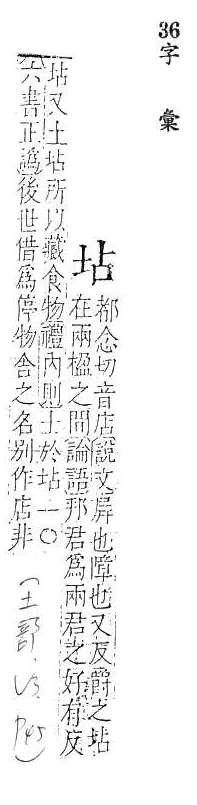 36字 彙
坫
都念切音店說文屏也障也又反爵之坫
在兩楹之間論語邦君爲兩君之好有反
坫又土坫所以藏食物禮內則士於坫一〇
六書正譌後世借爲停物舍之名别作店非
(土部,
P45)